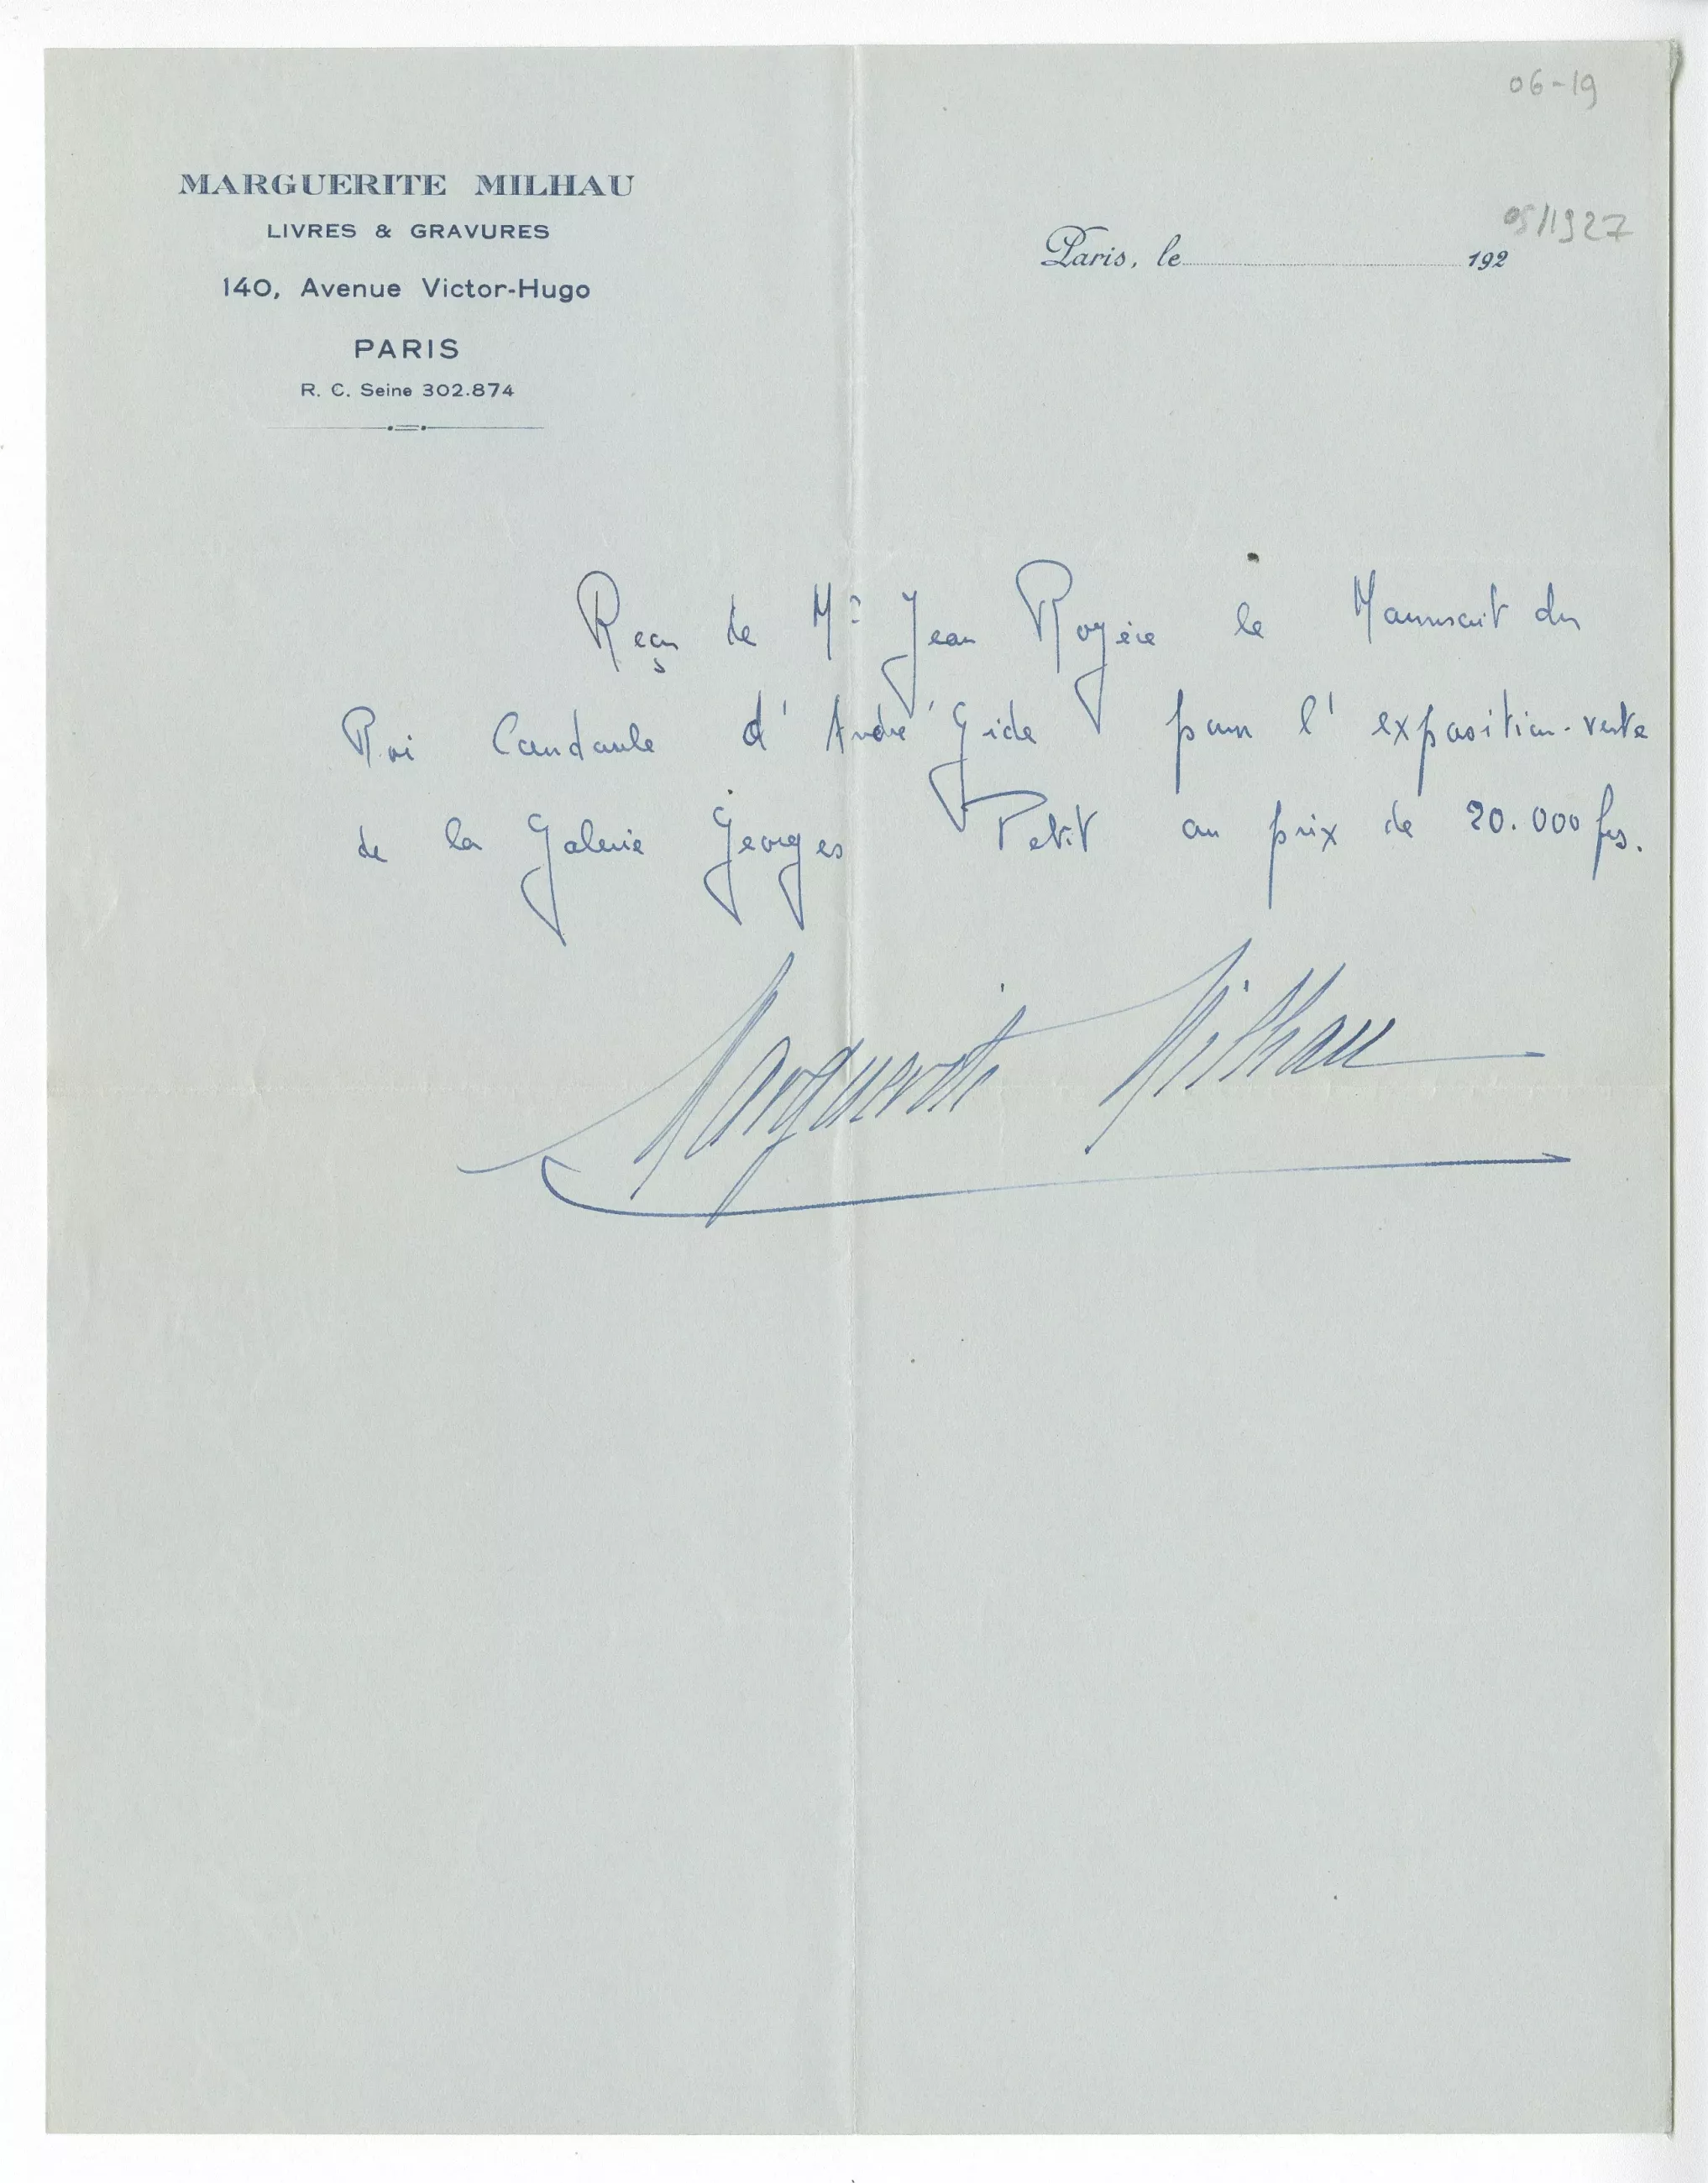 06-19
MARGUERITE MILHAU
LIVRES & GRAVURES
140, Avenue Victor-Hugo
PARIS
R. C. Seine 302.874
Paris, le 192
05/1927
Reçu de Mr Jean Royère le Manuscrit du
Roi Candaule d'André Gide pour l'exposition-vente
de la Galerie Georges Petit au prix de 20.000 frs.
Marguerite Milhau